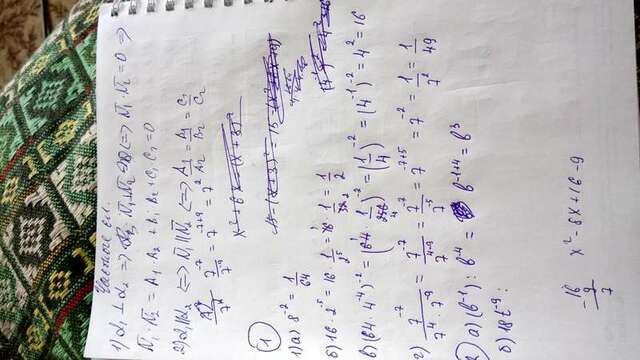 Частное сл.
1) α₁ ⊥ α₂ ⟺ N̄₁ ⊥ N̄₂ ⟺ N̄₁ · N̄₂ = 0 ⟹
N̄₁ · N̄₂ = A₁ · A₂ + B₁ B₂ + C₁ C₂ = 0
2) α₁ || α₂ ⟺ N̄₁ || N̄₂ ⟺ A₁/A₂ = B₁/B₂ = C₁/C₂
7⁻⁷/7⁻⁹ = 7⁻⁷⁺⁹ = 7²
1
1) а) 8⁻² = 1/64
б) 16 · 2⁻⁵ = 16 · 1/2⁵ = 16 · 1/32 = 1/2
в) (64 · 4⁻⁴)⁻² = (64 · 1/256)⁻² = (1/4)⁻² = (4⁻¹)⁻² = 4² = 16
г) 7⁻⁷/(7⁴ · 7⁻⁹) = 7⁻⁷/7⁴⁻⁹ = 7⁻⁷/7⁻⁵ = 7⁻⁷⁺⁵ = 7⁻² = 1/7² = 1/49
2 а) (b⁻¹) : b⁻⁴ = b⁻¹⁺⁴ = b³
б) 18t⁻⁹ :
16 - 9 = 7
x² - 8x + 16 - 9